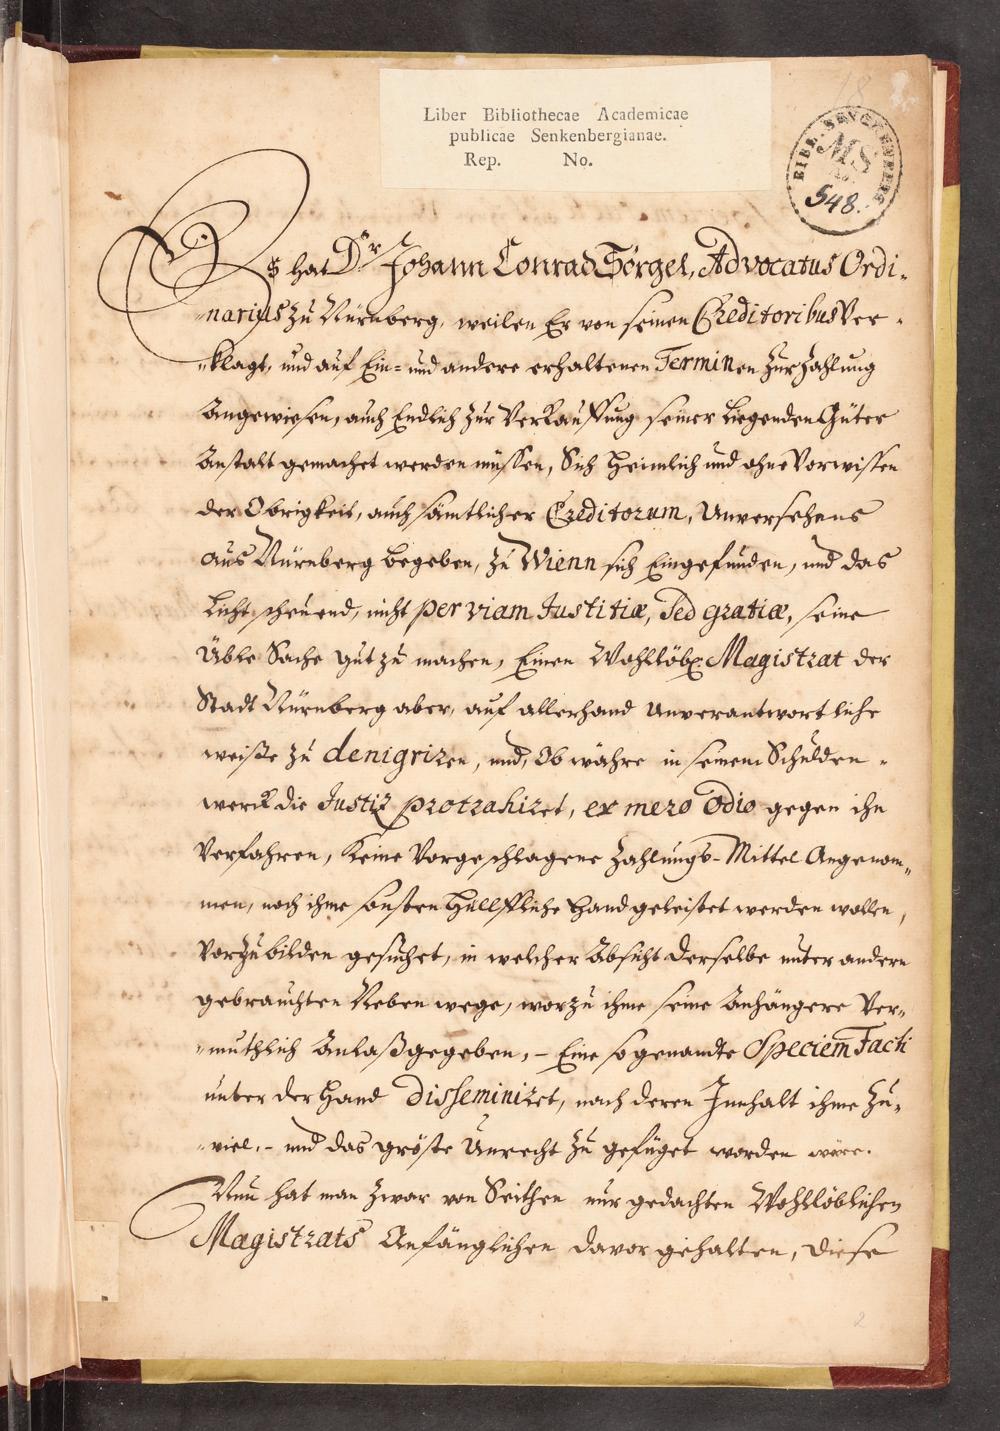 Liber Bibliothecae Academicae
publicae Senkenbergianae.
Rep. No.
BIBL. SENCKENBERG
MS
548.
Es hat Dr Johann Conrad Sörgel, Advocatus Ordi-
narius zu Nürnberg, weilen Er von seinen Creditoribus Ver-
klagt, und auf Ein- und andere erhaltenen Terminen zur Zahlung
Angewiesen, auch Endlich zur Verkauffung seiner Liegenden Güter
Anstalt gemachet werden müssen, Sich Heimlich und ohne Vorwissen
der Obrigkeit, auch sämtlicher Creditorum, Unversehens
aus Nürnberg begeben, zu Wienn sich Eingefunden, und das
Licht scheuend, nicht per viam Justitiæ, sed gratiæ, seine
Üble Sache gut zu machen, Einen Wohllöbl. Magistrat der
Stadt Nürnberg aber, auf allerhand Unverantwortliche
weiße zu denigriren, und, Ob währe in seinem Schulden-
werck die Justiz protrahiret, ex mero odio gegen ihn
Verfahren, Keine Vorgeschlagene Zahlungs-Mittel Angenom-
men, noch ihme sonsten Hülffliche Hand geleistet werden wollen,
Vorzubilden gesuchet, in welcher Absicht derselbe unter andern
gebrauchten Neben wege, worzu ihme seine Anhängere Ver-
muthlich Anlaß gegeben, - Eine so genandte Speciem Facti
unter der Hand disseminiret, nach deren Innhalt ihme zu-
viel, - und das gröste Unrecht zu gefüget worden wäre.
Nun hat man zwar von Seithen nur gedachten Wohllöblichen
Magistrats Anfänglichen davor gehalten, diese
2